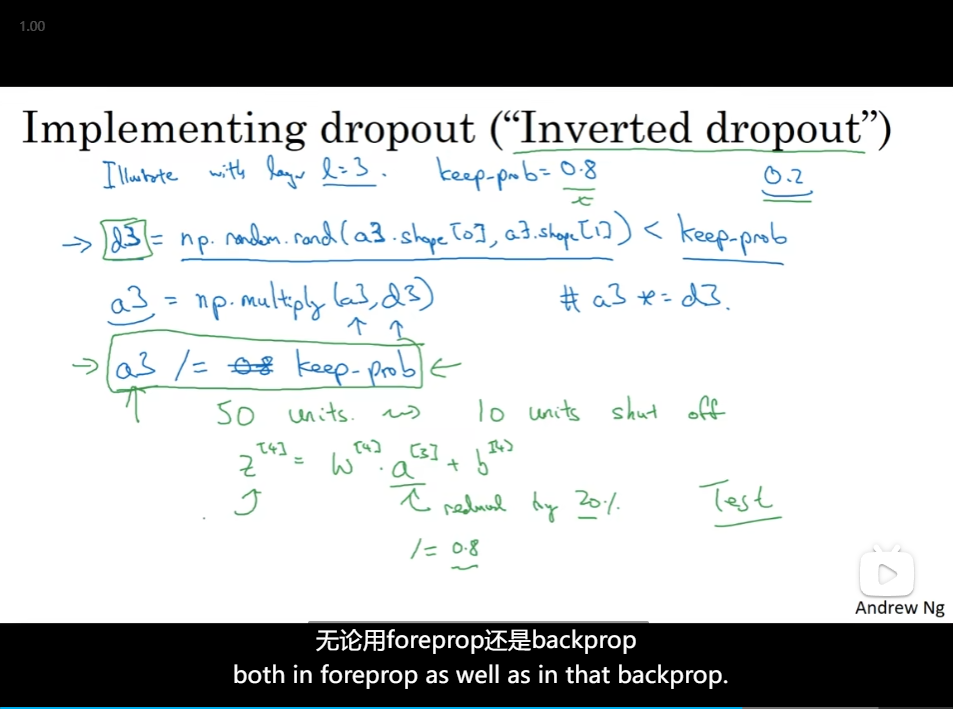 1.00
Implementing dropout (“Inverted dropout”)
Illustrate with layer l=3. keep-prob= 0.8 0.2
→ d3 = np.random.rand(a3.shape[0], a3.shape[1]) < keep-prob
a3 = np.multiply(a3, d3) # a3 *= d3.
→ a3 /= 0.8 keep-prob ←
50 units. ⇝ 10 units shut off
z^[4] = W^[4] · a^[3] + b^[4]
reduced by 20%. Test
/= 0.8
Andrew Ng
无论用foreprop还是backprop
both in foreprop as well as in that backprop.